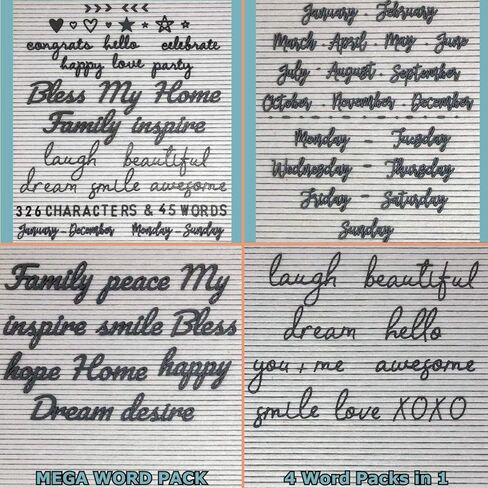 congrats hello celebrate
happy love party
Bless My Home
Family inspire
laugh beautiful
dream smile awesome
326 CHARACTERS & 45 WORDS
January - December Monday - Sunday
January - February
March - April - May - June
July - August - September
October - November - December
Monday - Tuesday
Wednesday - Thursday
Friday - Saturday
Sunday
Family peace My
inspire smile Bless
hope Home happy
Dream desire
MEGA WORD PACK
laugh beautiful
dream hello
you + me awesome
smile love XOXO
4 Word Packs in 1